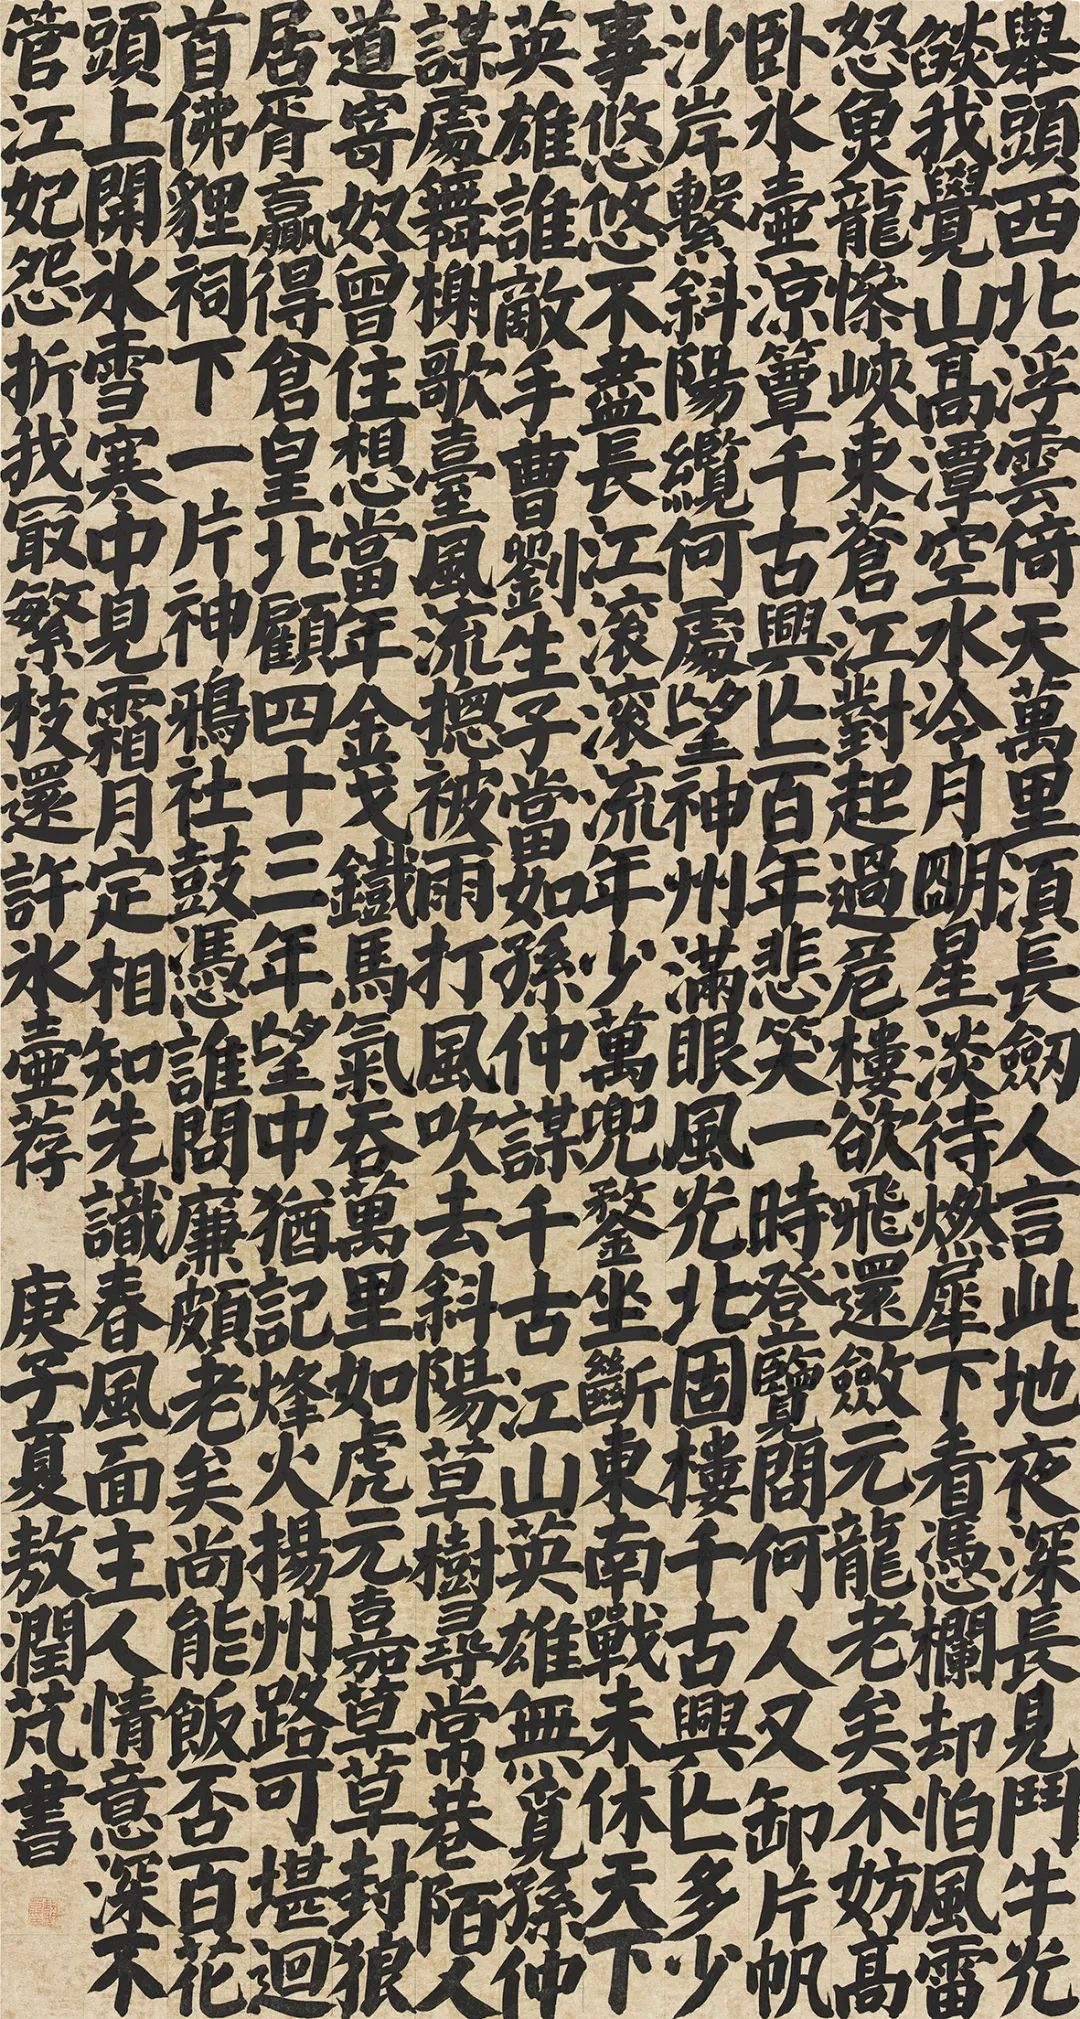 舉頭西北浮雲倚天萬里須長劔人言此地夜深長見鬥牛光
燄我覺山高潭空水冷月明星淡待燃犀下看憑欄却怕風雷
怒魚龍慘峽束蒼江對起過危樓欲飛還斂元龍老矣不妨高
卧冰壺涼簟千古興亡百年悲笑一時登覽問何人又卸片帆
沙岸繫斜陽纜何處望神州滿眼風光北固樓千古興亡多少
事悠悠不盡長江滾滾流年少萬兜鍪坐斷東南戰未休天下
英雄誰敵手曹劉生子當如孫仲謀千古江山英雄無覓孫仲
謀處舞榭歌臺風流揔被雨打風吹去斜陽草樹尋常巷陌人
道寄奴曾住想當年金戈鐵馬氣吞萬里如虎元嘉草草封狼
居胥贏得倉皇北顧四十三年望中猶記烽火揚州路可堪迴
首佛貍祠下一片神鴉社鼓憑誰問廉頗老矣尚能飯否百花
頭上開冰雪寒中見霜月定相知先識春風面主人情意深不
管江妃怨折我冣繁枝還許冰壺荐 庚子夏敖潤芃書